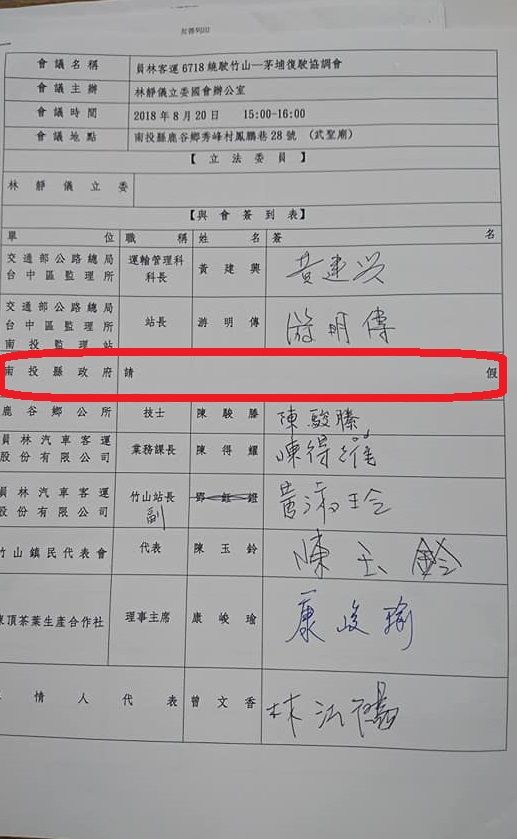 會議名稱 員林客運6718繞駛竹山—茅埔復駛協調會
會議主辦 林靜儀立委國會辦公室
會議時間 2018年8月20日 15:00-16:00
會議地點 南投縣鹿谷鄉秀峰村鳳鵬巷28號 (武聖廟)
【立法委員】
林靜儀立委
【與會簽到表】
單位 職稱 姓名 簽名
交通部公路總局 運輸管理科
台中區監理所 科長 黃建興 黃建興
交通部公路總局
台中區監理所 站長 游明傳 游明傳
南投監理站
南投縣政府 請假
鹿谷鄉公所 技士 陳駿騰 陳駿騰
員林汽車客運
股份有限公司 業務課長 陳得耀 陳得
員林汽車客運 竹山站長
股份有限公司 副 黃
竹山鎮民代表會 代表 陳玉鈴 陳玉鈴
凍頂茶葉生產合作社 理事主席 康峻瑜 康峻瑜
情人代表 曾文香 林